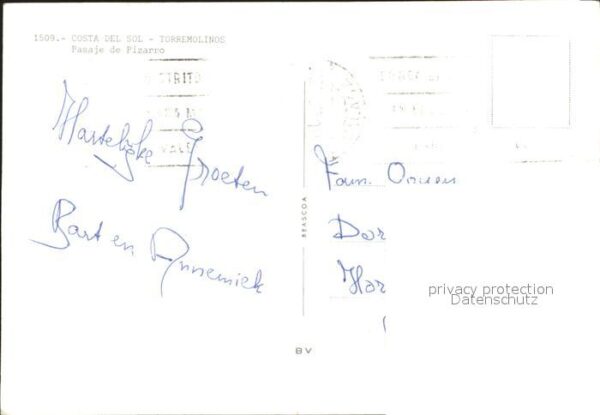 1509.- COSTA DEL SOL - TORREMOLINOS
Pasaje de Pizarro
Hartelijke Groeten
Bart en Annemiek
BEASCOA
Fam.
Dor
Har
BV
privacy protection
Datenschutz